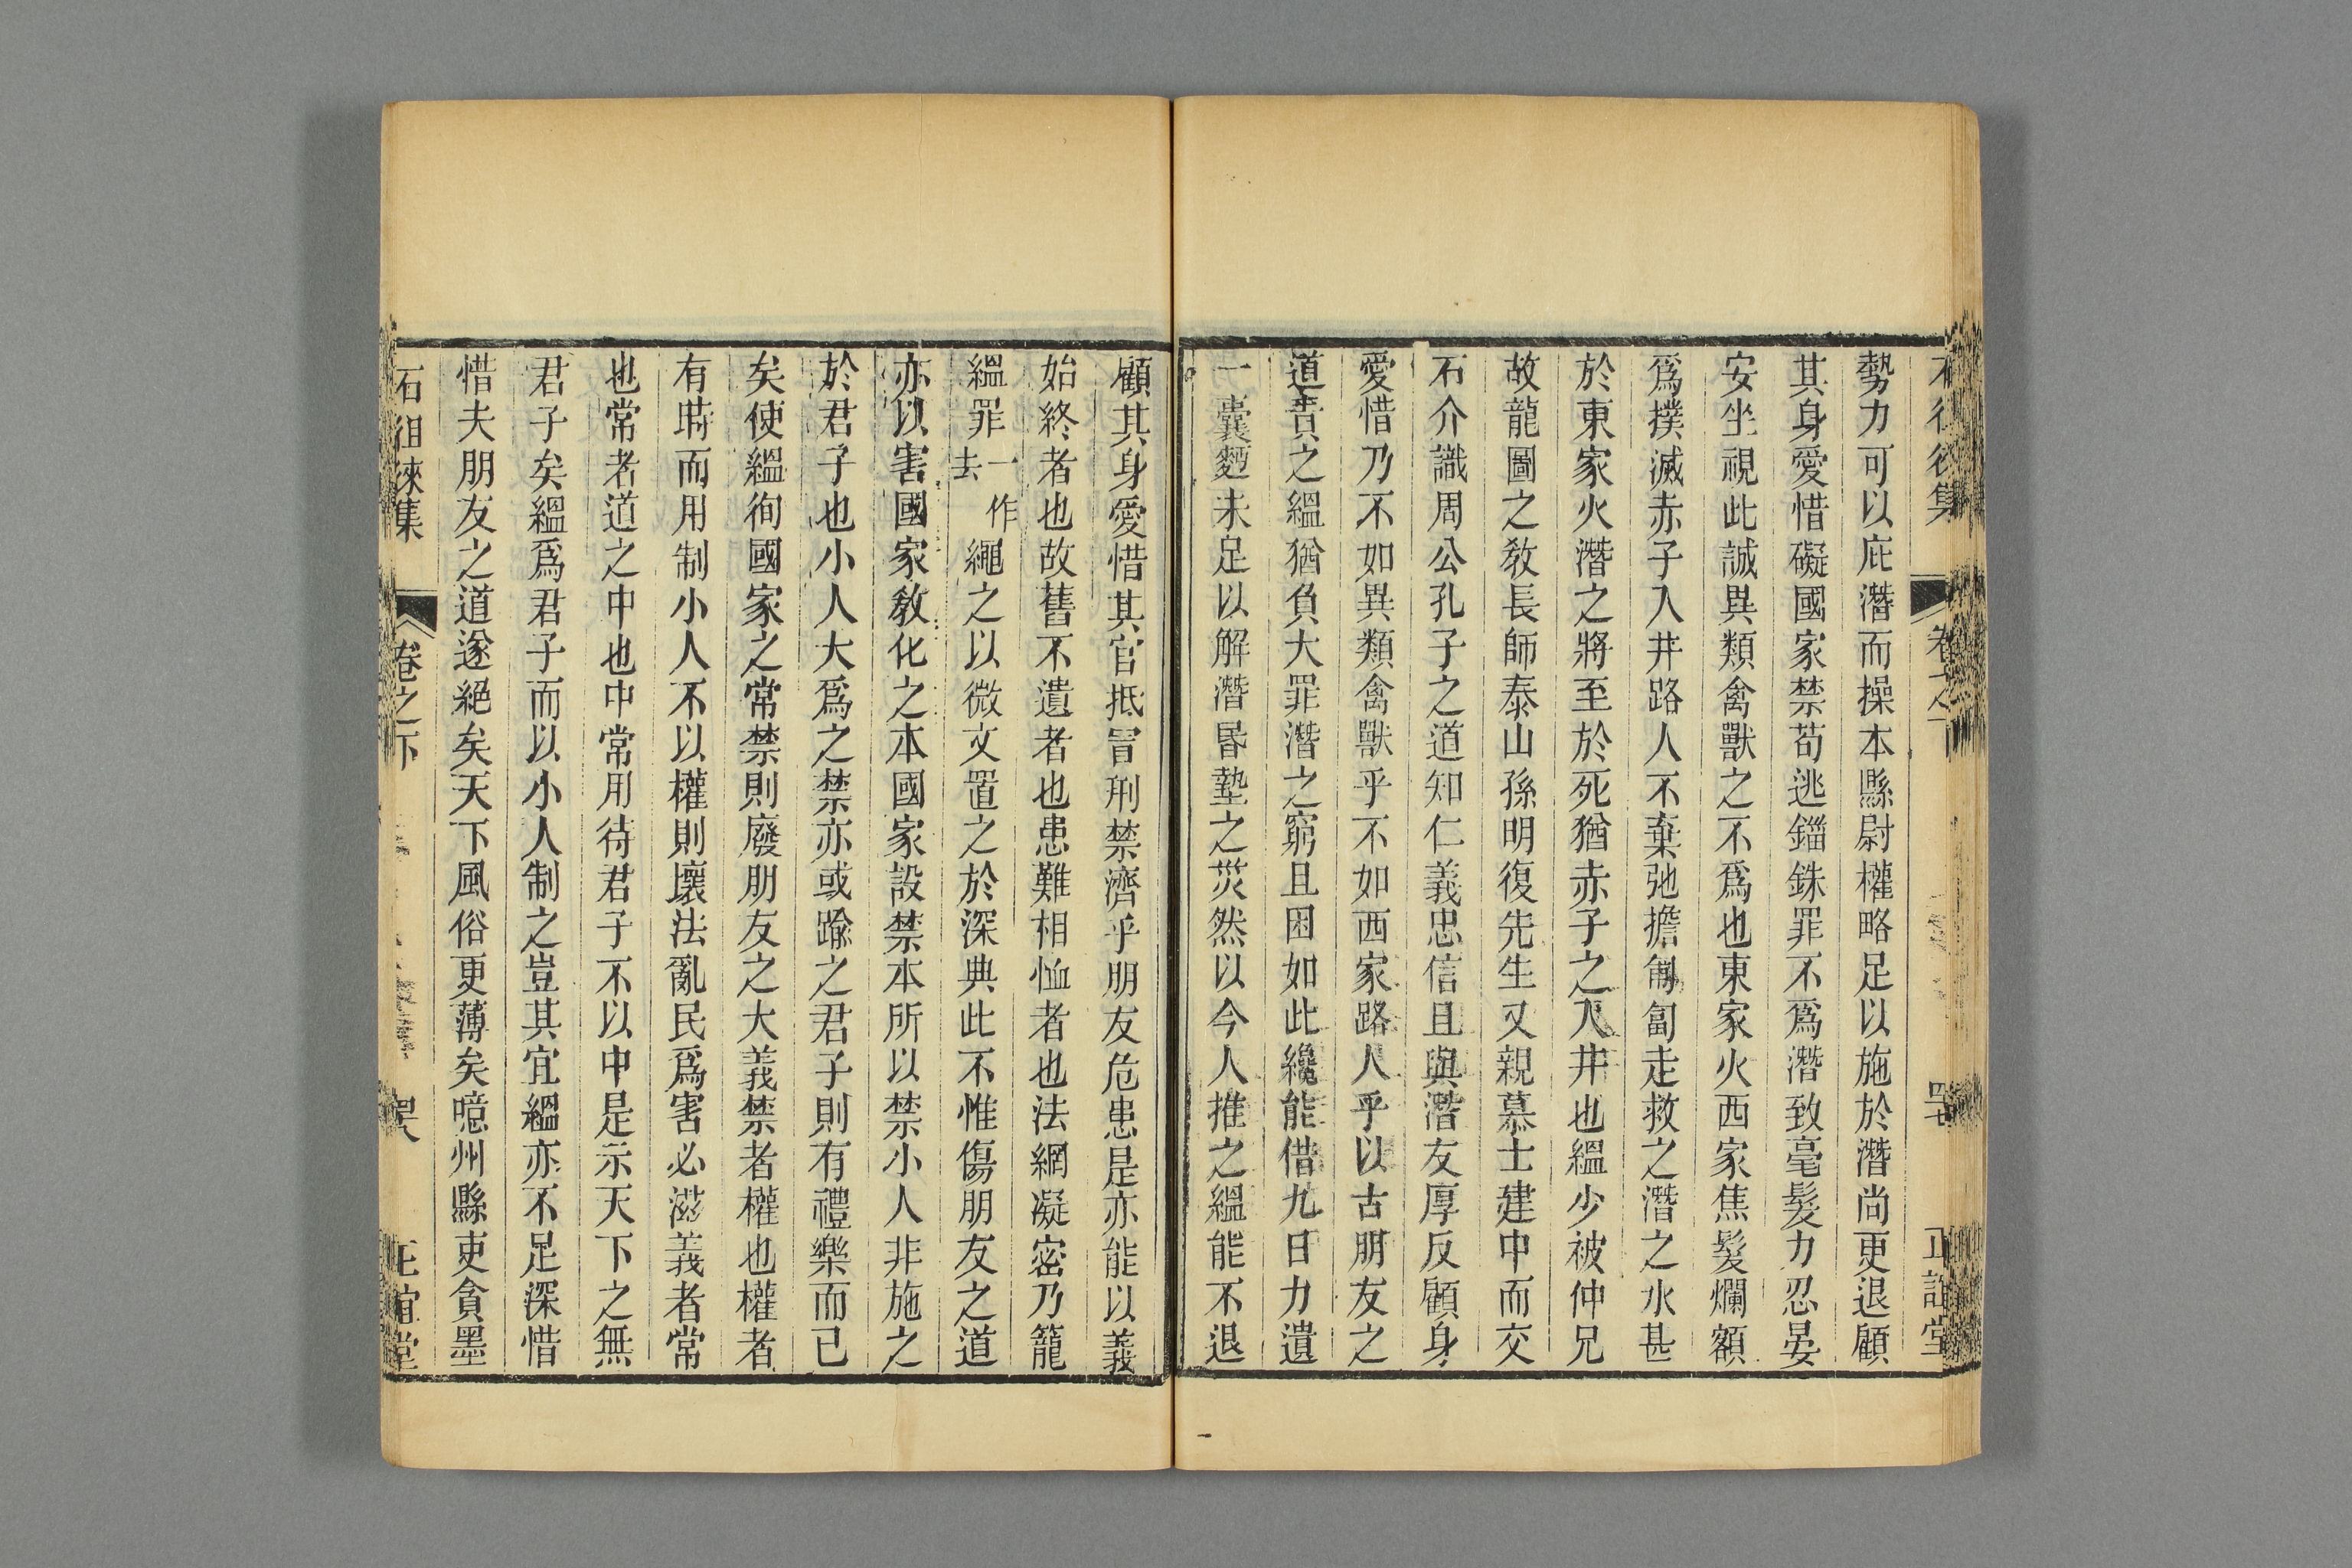 勢力可以庇潛而操本縣尉權略足以施於潛尚更退顧
其身愛惜礙國家禁苟逃錙銖罪不爲潛致毫髮力忍晏
安坐視此誠異類禽獸之不爲也東家火西家焦髮爛額
爲撲滅赤子入井路人不棄弛擔匍匐走救之潛之水甚
於東家火潛之將至於死猶赤子之入井也縕少被仲兄
故龍圖之敎長師泰山孫明復先生又親慕士建中而交
石介識周公孔子之道知仁義忠信且與潛友厚反顧身
愛惜乃不如異類禽獸乎不如西家路人乎以古朋友之
道責之縕猶負大罪潛之窮且困如此纔能借九日力遺
一囊麪未足以解潛昬墊之災然以今人推之縕能不退
顧其身愛惜其官抵冒刑禁濟乎朋友危患是亦能以義
始終者也故舊不遺者也患難相恤者也法網凝密乃籠
縕罪一作去繩之以微文置之於深典此不惟傷朋友之道
亦以害國家敎化之本國家設禁本所以禁小人非施之
於君子也小人大爲之禁亦或踰之君子則有禮樂而已
矣使縕徇國家之常禁則廢朋友之大義禁者權也權者
有時而用制小人不以權則壞法亂民爲害必滋義者常
也常者道之中也中常用待君子不以中是示天下之無
君子矣縕爲君子而以小人制之豈其宜縕亦不足深惜
惜夫朋友之道遂絕矣天下風俗更薄矣噫州縣吏貪墨
石徂徠集 卷之下 正誼堂